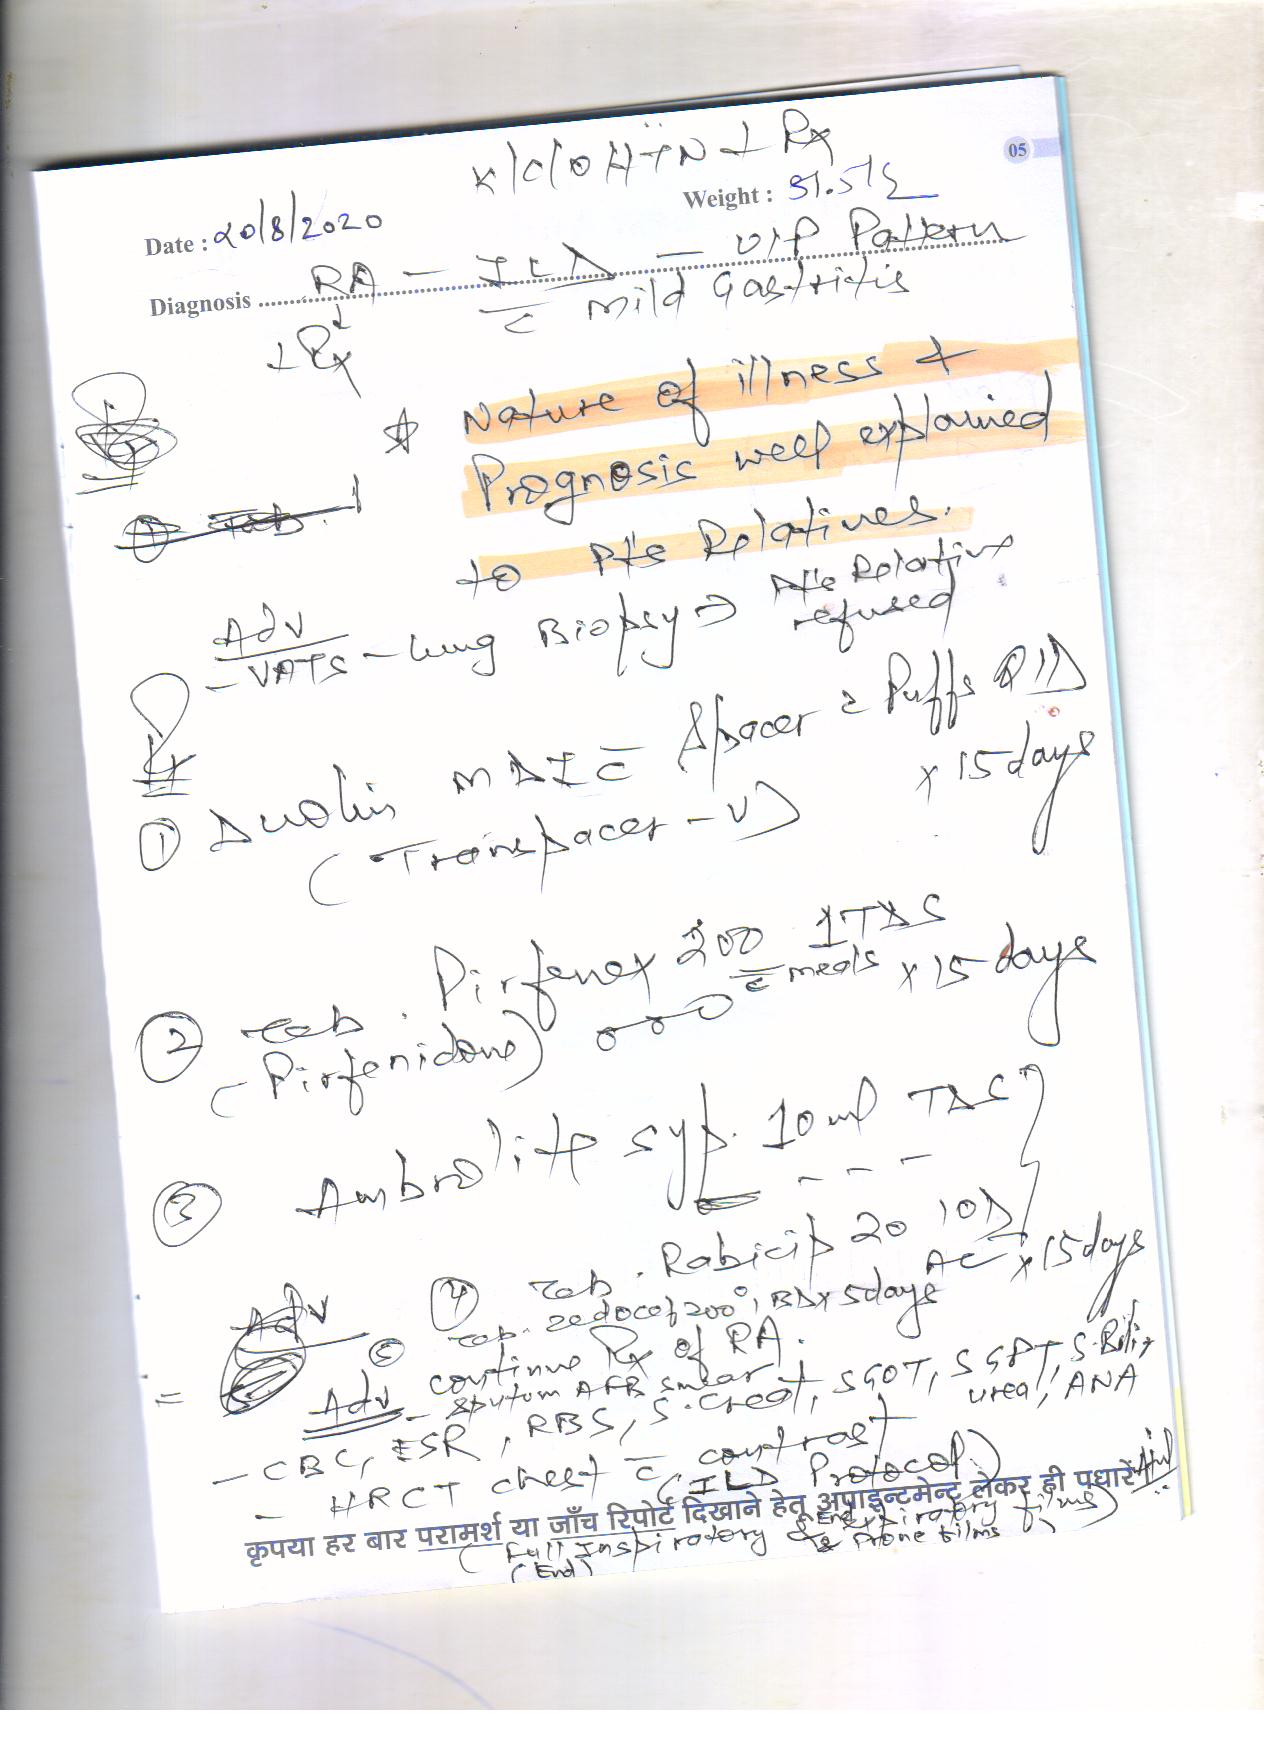 K/C/O HTN ⊥ Rx
05
Date : 20/8/2020
Weight :
Diagnosis RA – ILD – UIP Pattern
↓
⊥ Rx
c̄ mild Gastritis
☆ Nature of illness &
Prognosis well explained
to Pt's Relatives.
① Tab.
Adv
– VATS – lung Biopsy → Pt's Relative
refused
① Duolin MDI c̄ Spacer 2 Puffs QID
(Transpacer – V) x 15 days
② Tab. Pirfenex 200 1 TDS
(Pirfenidone) c̄ meals x 15 days
③ Ambrolite syp. 10 ml TDS
– – –
④ Tab. Rabicip 20 1 OD
AC x 15 days
⑤ Tab. zedocef 200 1 BD x 5 days
Adv
continue Rx of RA.
Adv – Sputum AFB smear
– CBC, ESR, RBS, S. Creat, SGOT, SGPT, S. Bili,
urea, ANA
– HRCT chest c̄ contrast
(ILD Protocol)
कृपया हर बार परामर्श या जाँच रिपोर्ट दिखाने हेतू अपाइन्टमेन्ट लेकर ही पधारें
(Full Inspiratory & End Expiratory films)
(End) & Prone films